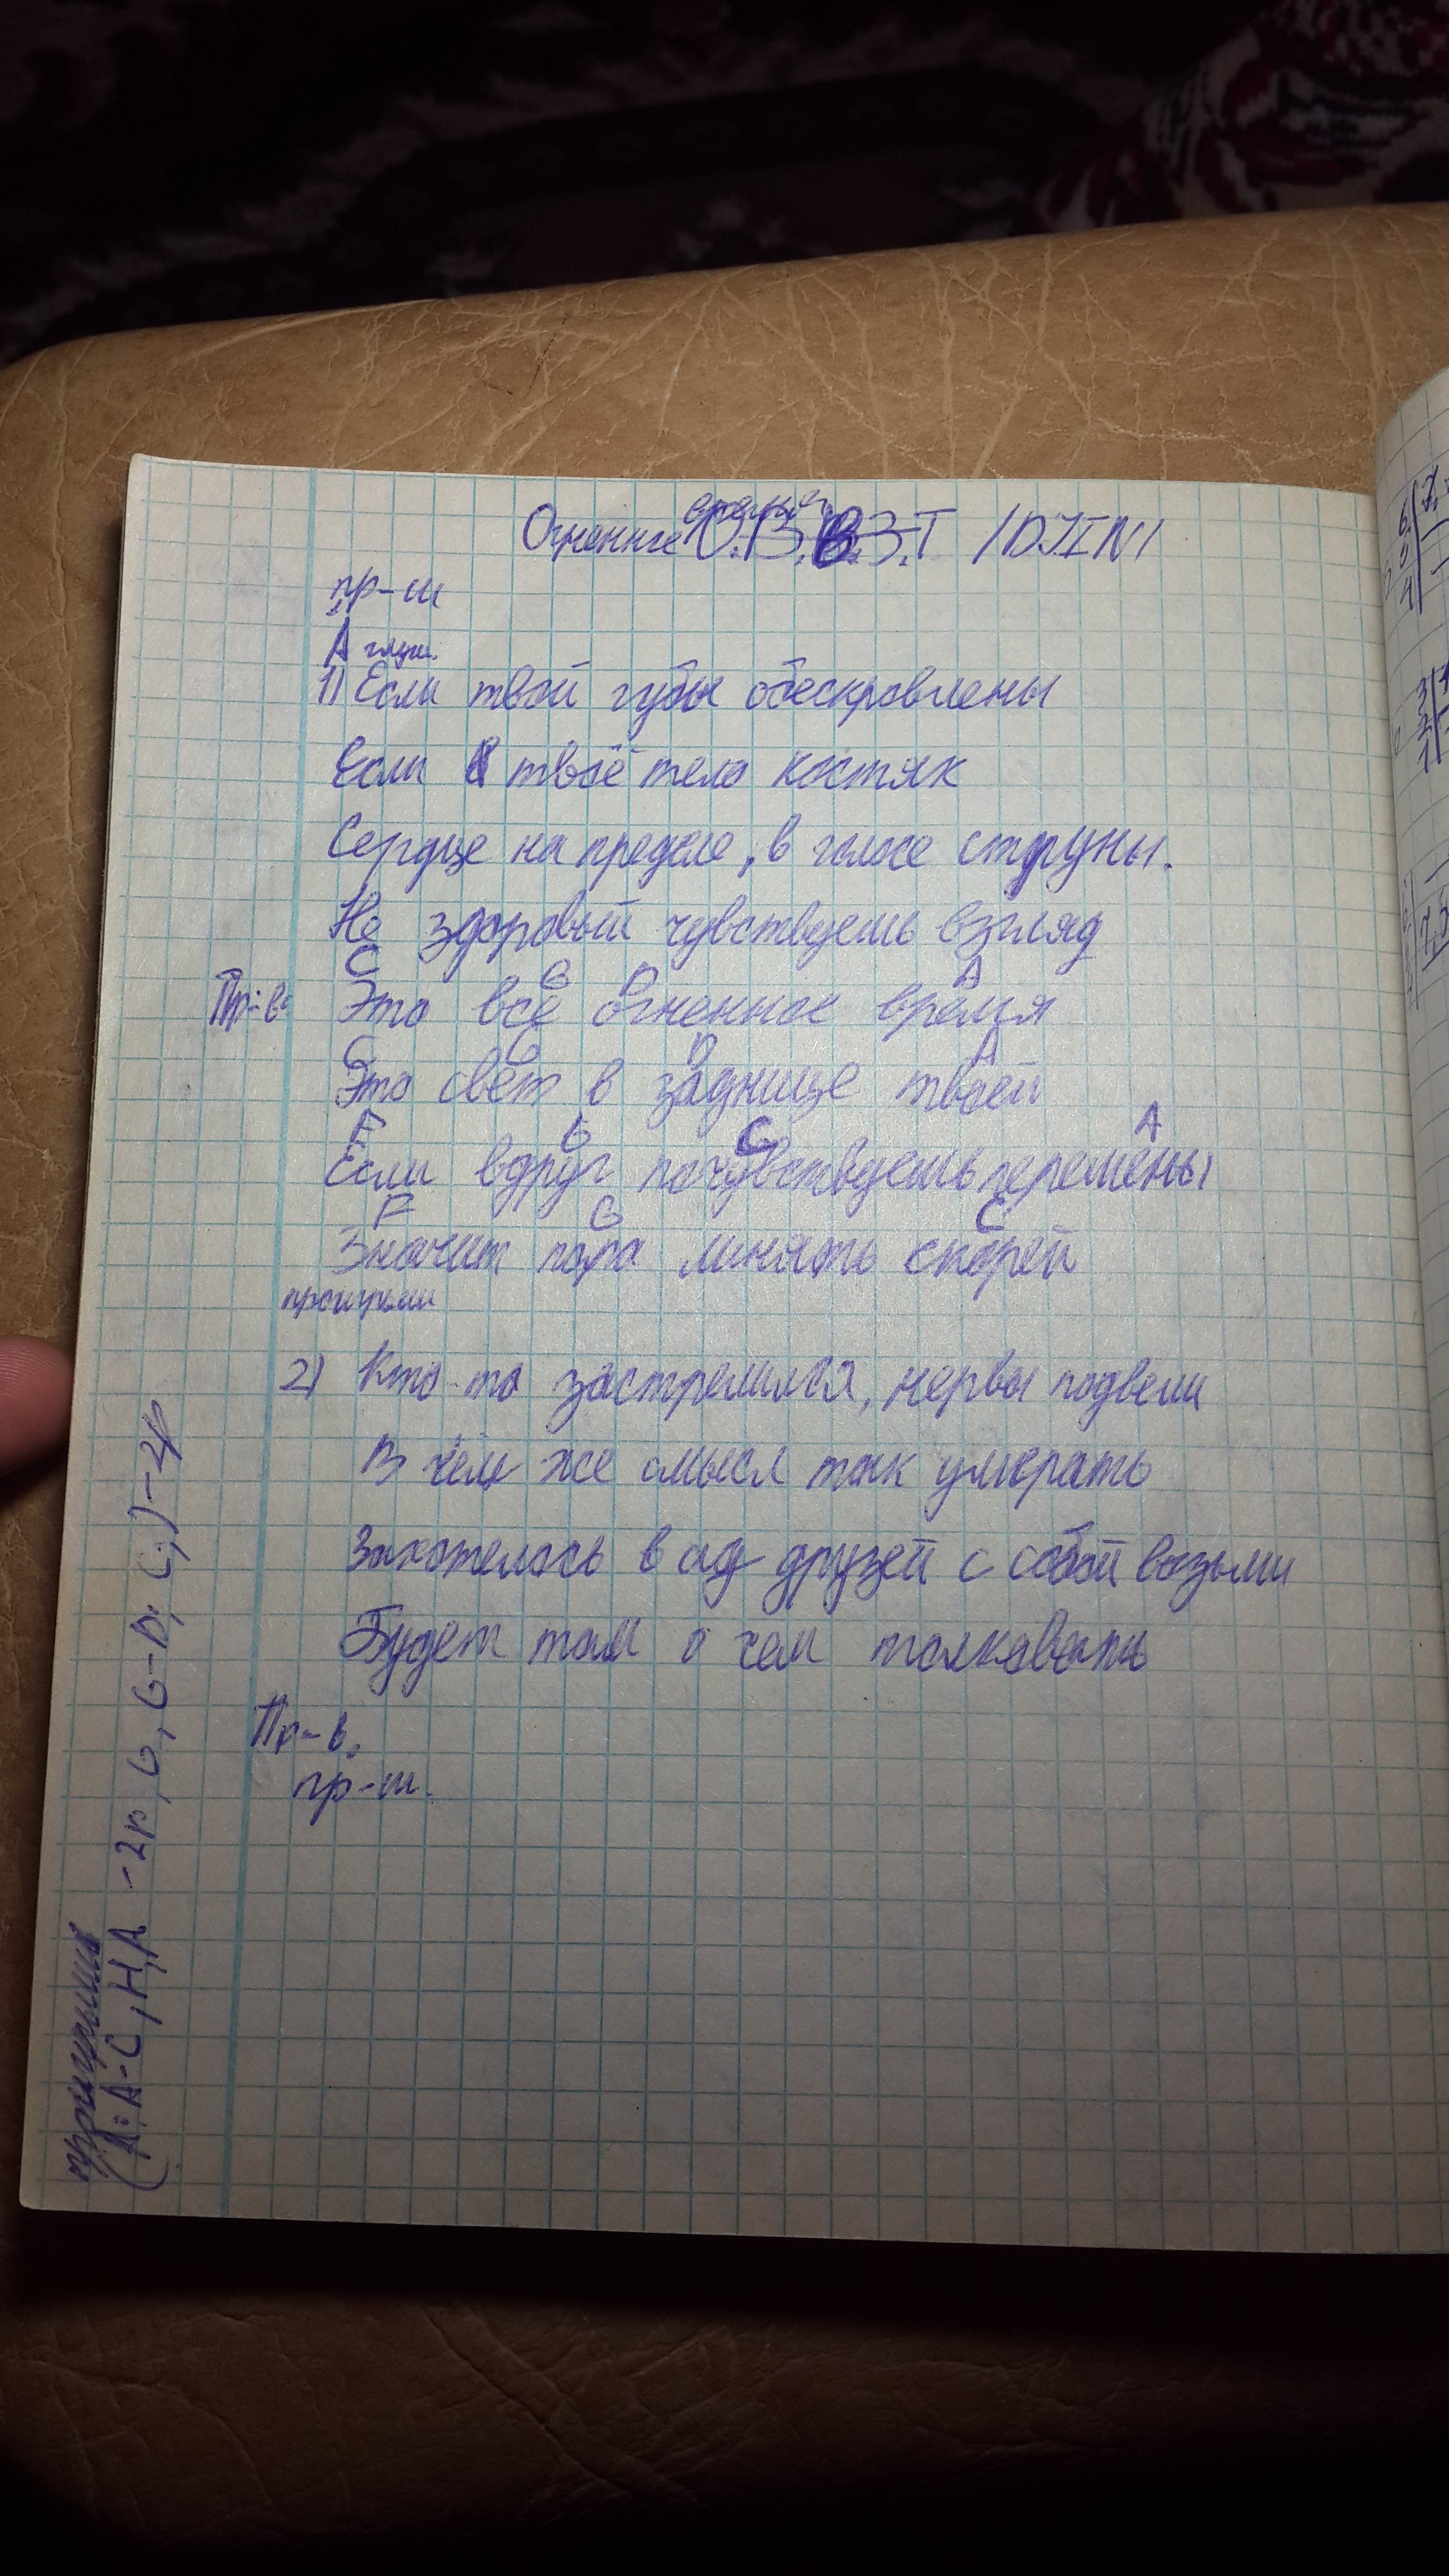 Огненное время О.В.В.З.Т /DJIN/
пр-ш
А глуш.
1) Если твой губы обескровлены
Если твоё тело костяк
Сердце на пределе, в голосе струны.
Не здоровый чувствуешь взгляд
C G D A
Пр-в: Это всё огненное время
C G D A
Это свет в заднице твоей
F G C A
Если вдруг почувствуешь перемены
F G C
Значит пора линять скорей
проигрыш
2) Кто-то застрелился, нервы подвели
В чём же смысл так умирать
Захотелось в ад друзей с собой возьми
Будет там о чем толковать
Пр-в.
пр-ш.
проигрыш
(A: A-C, H, A -2р, G, G-D; C;) -4р